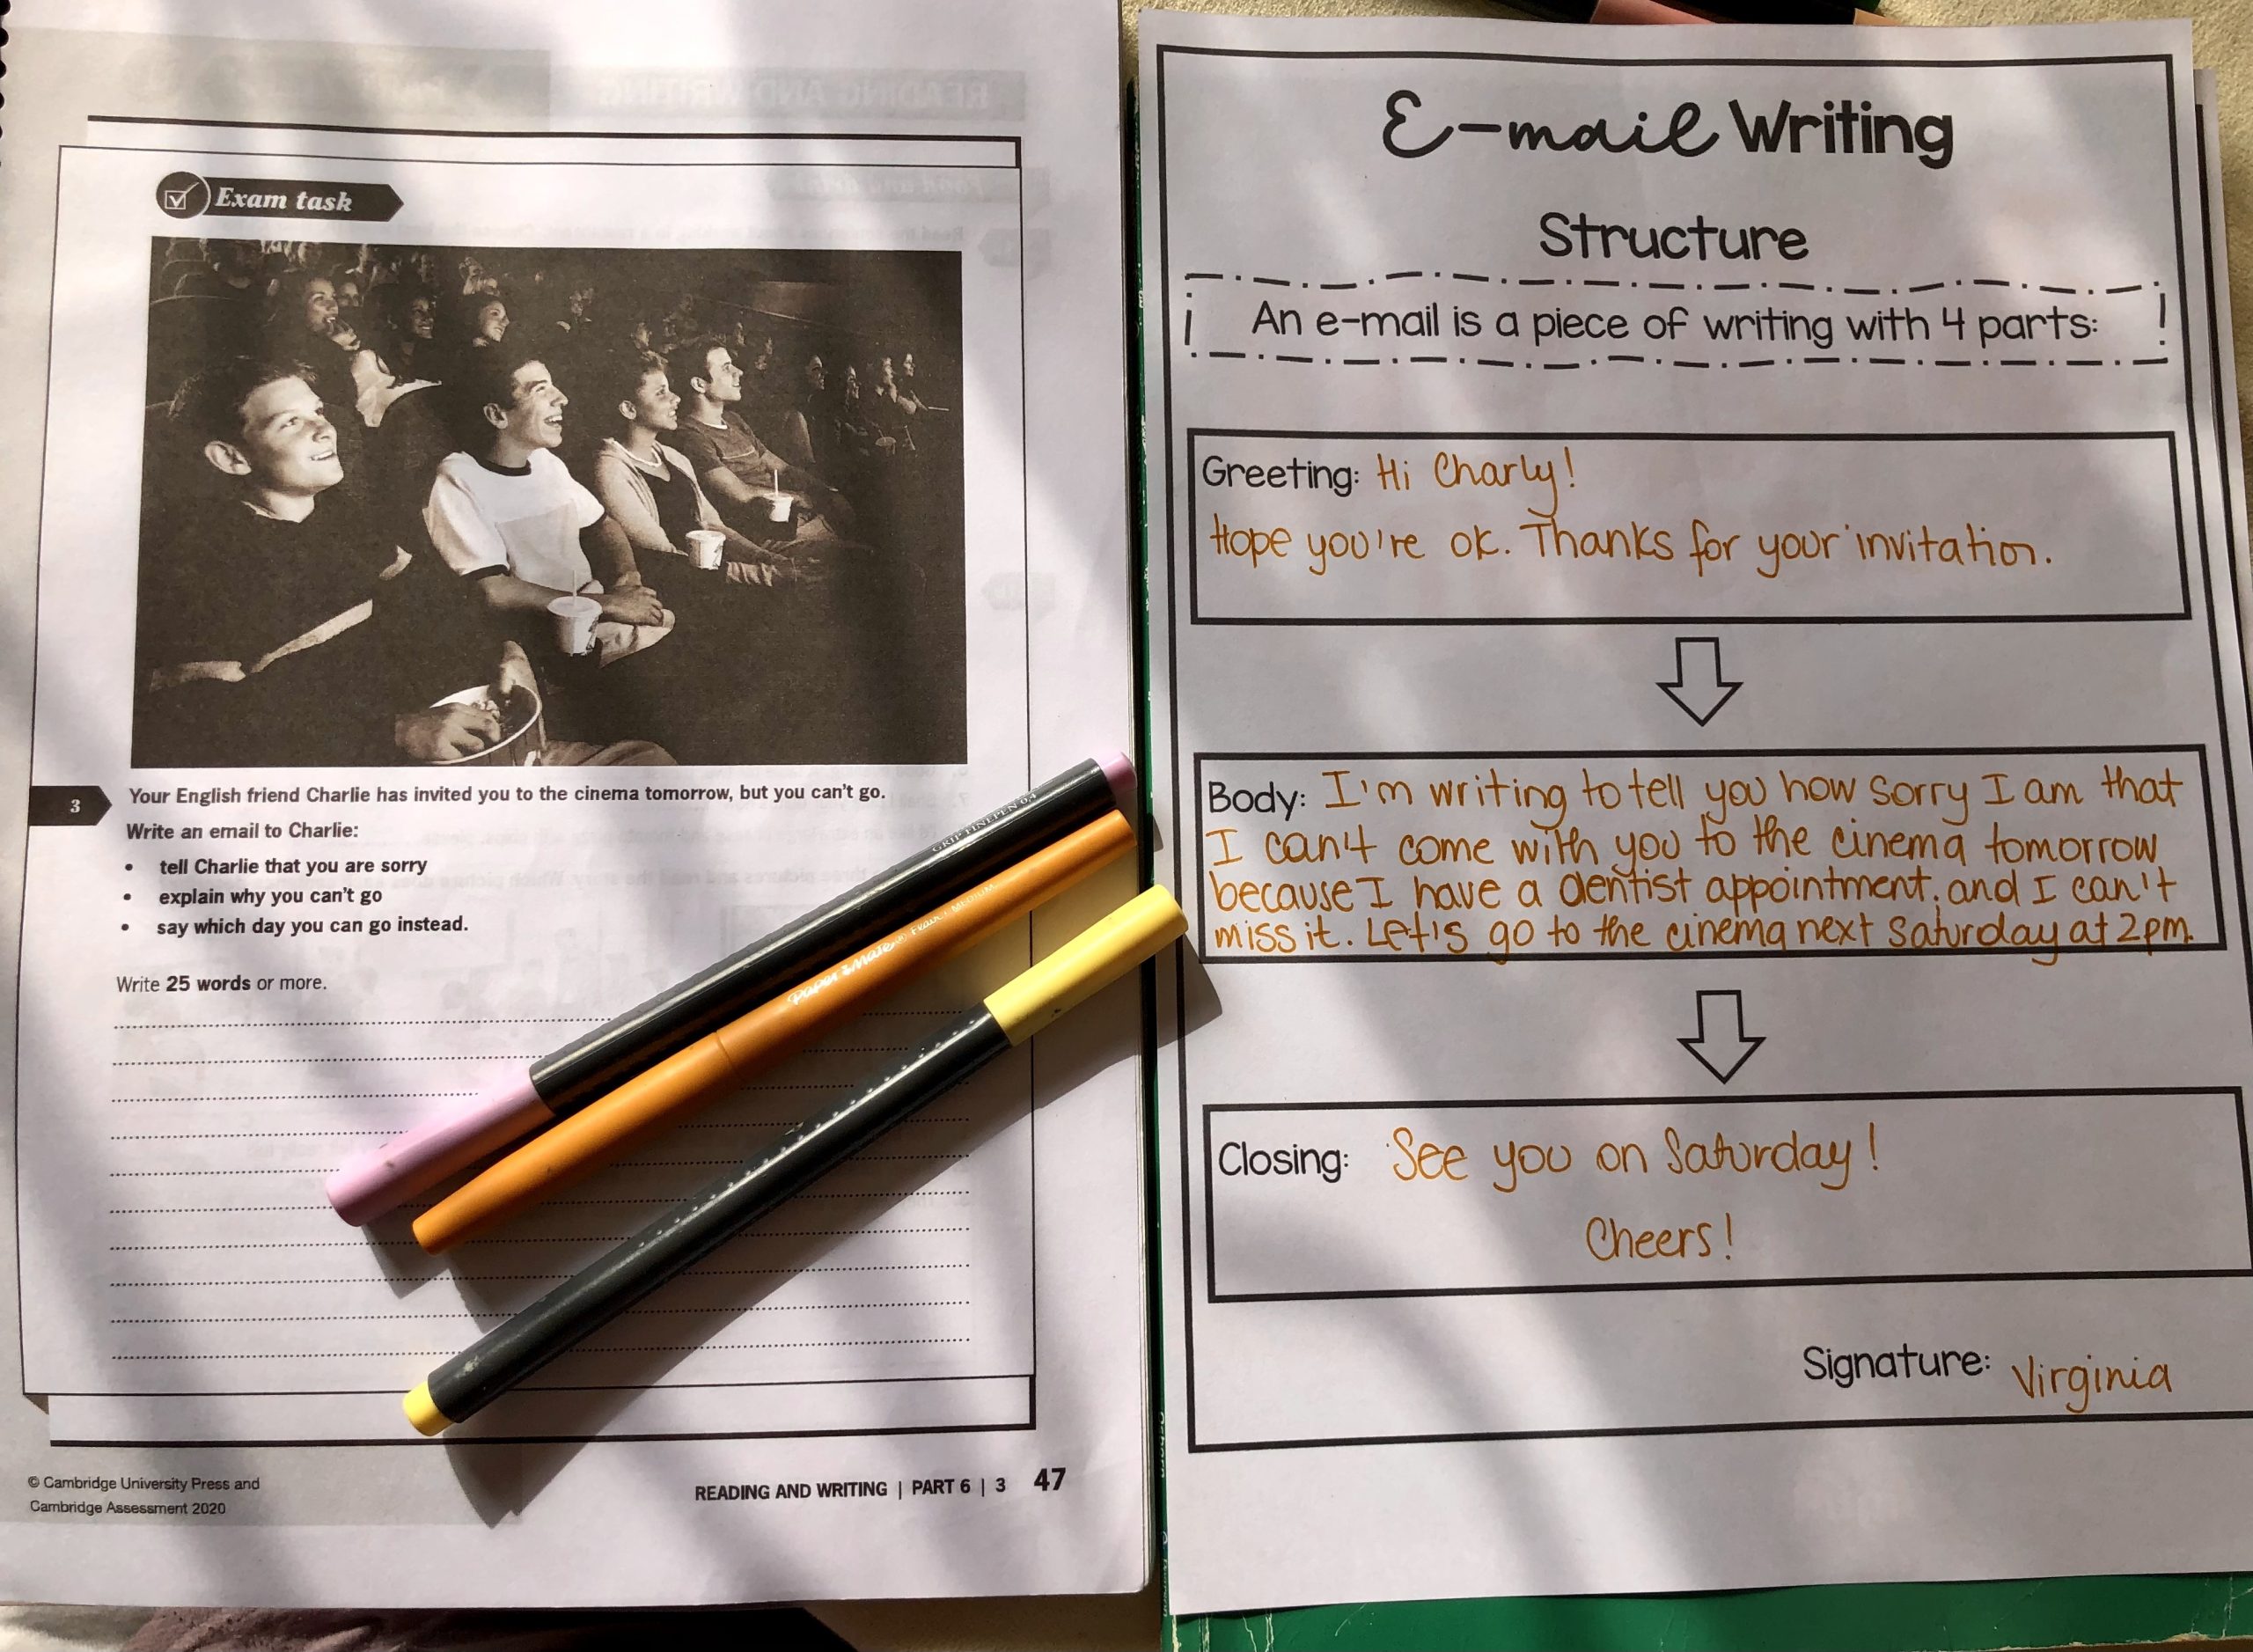 Exam task
3
Your English friend Charlie has invited you to the cinema tomorrow, but you can't go.
Write an email to Charlie:
• tell Charlie that you are sorry
• explain why you can't go
• say which day you can go instead.
Write 25 words or more.
© Cambridge University Press and
Cambridge Assessment 2020
READING AND WRITING | PART 6 | 3 47
GRIP FINEPEN 0.4
Paper Mate Flair Medium
E-mail Writing
Structure
An e-mail is a piece of writing with 4 parts:
Greeting: Hi Charly!
Hope you're ok. Thanks for your invitation.
Body: I'm writing to tell you how sorry I am that
I can't come with you to the cinema tomorrow
because I have a dentist appointment. and I can't
miss it. Let's go to the cinema next Saturday at 2pm.
Closing: See you on Saturday!
Cheers!
Signature: Virginia